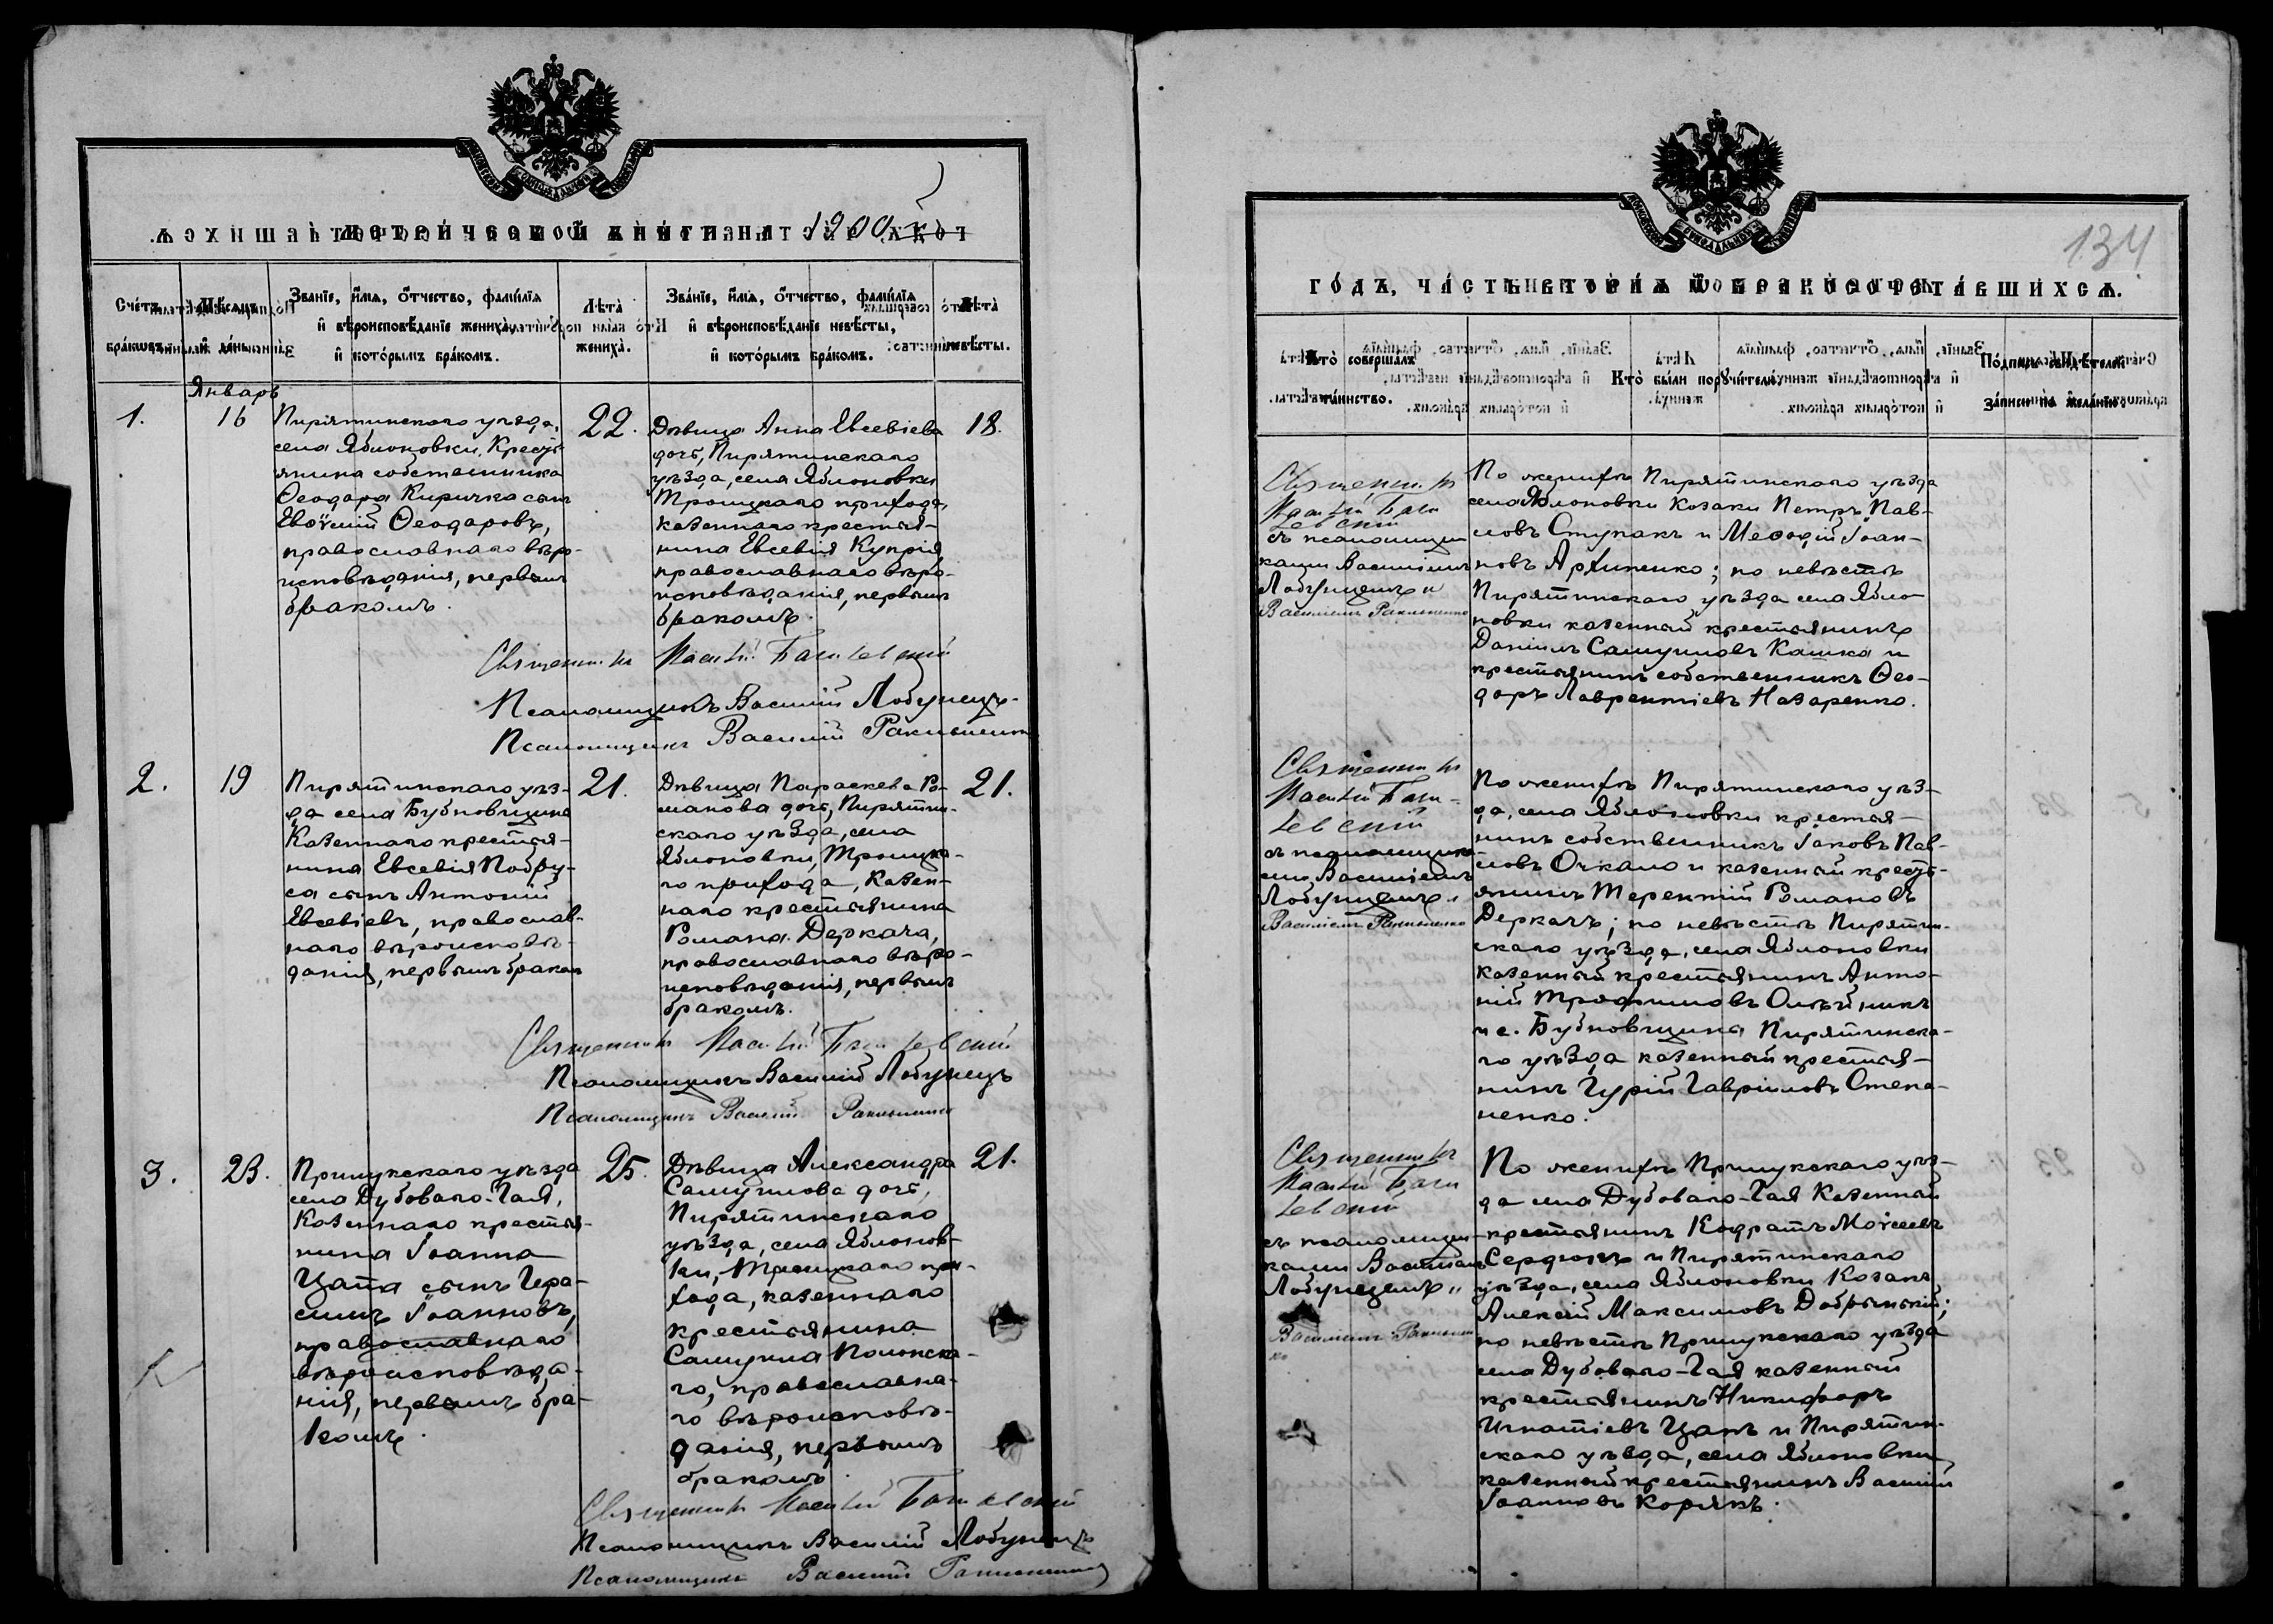 1900
134
Счетъ браковъ.
Мѣсяцъ и день.
Званіе, имя, отчество, фамилія и вѣроисповѣданіе жениха, и которымъ бракомъ.
Лѣта жениха.
Званіе, имя, отчество, фамилія и вѣроисповѣданіе невѣсты, и которымъ бракомъ.
Лѣта невѣсты.
Январь
1.
16
Пирятинскаго уѣзда,
села Яблоновки, Кресть-
янина собственника
Ѳеодора Киричка сынъ
Евѳимій Ѳеодоровъ,
православнаго вѣро-
исповѣданія, первымъ
бракомъ.
22.
Дѣвица Анна Евсевіева
дочь, Пирятинскаго
уѣзда, села Яблоновки
Троицкаго прихода,
казеннаго крестья-
нина Евсевія Купрія,
православнаго вѣро-
исповѣданія, первымъ
бракомъ.
18.
Священникъ
Псаломщикъ Василій Лобунецъ
Псаломщикъ Василій
2.
19
Пирятинскаго уѣз-
да села Бубновщина
Казеннаго крестья-
нина Евсевія Побру-
са сынъ Антоній
Евсевіевъ, православ-
наго вѣроисповѣ-
данія, первымъ бракомъ
21.
Дѣвица Параскева Ро-
манова дочь, Пирятин-
скаго уѣзда, села
Яблоновки, Троицка-
го прихода, казен-
наго крестьянина
Романа Деркача,
православнаго вѣро-
исповѣданія, первымъ
бракомъ.
21.
Священникъ
Псаломщикъ Василій Лобунецъ
Псаломщикъ Василій
3.
23.
Прилукскаго уѣзда
села Дубоваго-Гая,
Казеннаго крестья-
нина Іоанна
Цапа сынъ Гера-
симъ Іоанновъ,
православнаго
вѣроисповѣда-
нія, первымъ бра-
комъ.
25.
Дѣвица Александра
Самуилова дочь,
Пирятинскаго
уѣзда, села Яблонов-
ки, Троицкаго при-
хода, казеннаго
крестьянина
Самуила Полонска-
го, православна-
го вѣроисповѣ-
данія, первымъ
бракомъ.
21.
Священникъ
Псаломщикъ Василій Лобунецъ
Псаломщикъ Василій
годъ, часть вторая, о бракосочетавшихся.
Кто совершалъ таинство.
Кто были поручители.
Подпись свидѣтелей записи по желанію.
Священникъ
съ псаломщи-
ками Василіемъ
Лобунцемъ и
Василіемъ
По женихѣ Пирятинскаго уѣзда
села Яблоновки Козаки Петръ Пав-
ловъ Ступакъ и Меѳодій Іоан-
новъ Архипенко; по невѣстѣ
Пирятинскаго уѣзда села Ябло-
новки казенный крестьянинъ
Даніилъ Самуиловъ Кашка и
крестьянинъ собственникъ Ѳео-
доръ Лаврентіевъ Назаренко.
Священникъ
съ псаломщика-
ми Василіемъ
Лобунцемъ и
Василіемъ
По женихѣ Пирятинскаго уѣз-
да, села Яблоновки крестья-
нинъ собственникъ Іаковъ Пав-
ловъ Очкало и казенный кресть-
янинъ Терентій Романовъ
Деркачъ; по невѣстѣ Пирятин-
скаго уѣзда, села Яблоновки
казенный крестьянинъ Анто-
ній Трофимовъ Олѣйникъ
и с. Бубновщина Пирятинска-
го уѣзда казенный крестья-
нинъ Гурій Гавріиловъ Степа-
ненко.
Священникъ
съ псаломщи-
ками Василіемъ
Лобунцемъ и
Василіемъ
По женихѣ Прилукскаго уѣз-
да села Дубоваго-Гая Казенный
крестьянинъ Кодратъ Моѵсеевъ
Сердюкъ и Пирятинскаго
уѣзда, села Яблоновки Козакъ
Алексій Максимовъ Добрынскій;
по невѣстѣ Прилукскаго уѣзда
села Дубоваго-Гая казенный
крестьянинъ Никифоръ
Игнатіевъ Цапъ и Пирятин-
скаго уѣзда, села Яблоновки
казенный крестьянинъ Василій
Іоанновъ Корякъ.